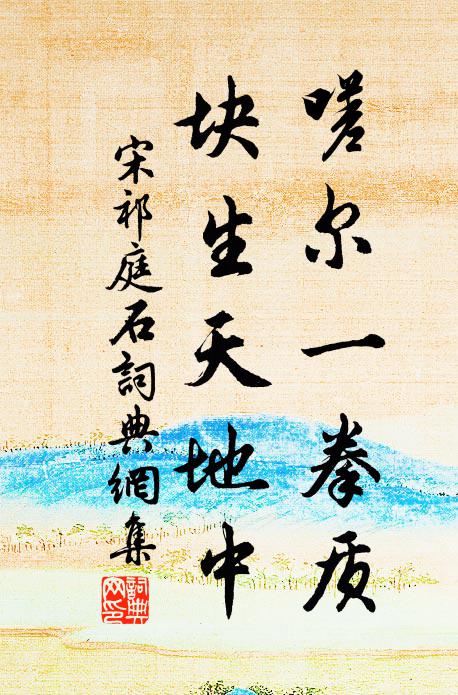 嗟尔一拳质
块生天地中
宋祁庭石詞典網集
詞典网印